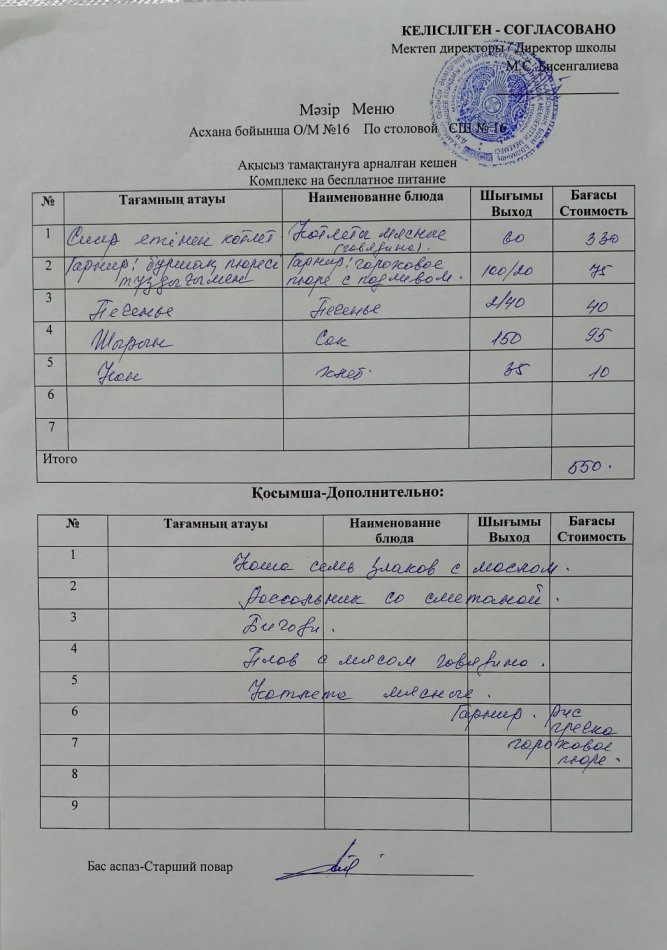 КЕЛІСІЛГЕН - СОГЛАСОВАНО
Мектеп директоры / Директор школы
М.С. Бисенгалиева
Мәзір Меню
Асхана бойынша О/М №16 По столовой СШ № 16
Ақысыз тамақтануға арналған кешен
Комплекс на бесплатное питание
№ Тағамның атауы Наименование блюда Шығымы Выход Бағасы Стоимость
1 Сиыр етінен котлет Котлета мясные (говядина). 60 330
2 Гарнир: бұршақ пюресі тұздығымен Гарнир: гороховое пюре с подливом. 100/20 75
3 Печенье Печенье 2/40 40
4 Шырын Сок 150 95
5 Нан хлеб. 35 10
6
7
Итого 550.
Қосымша-Дополнительно:
№ Тағамның атауы Наименование блюда Шығымы Выход Бағасы Стоимость
1 Каша семь злаков с маслом.
2 Рассольник со сметаной.
3 Бигоди.
4 Плов с мясом говядина.
5 Котлета мясные.
6 Гарнир. рис
гречка
7 гороховое
пюре.
8
9
Бас аспаз-Старший повар